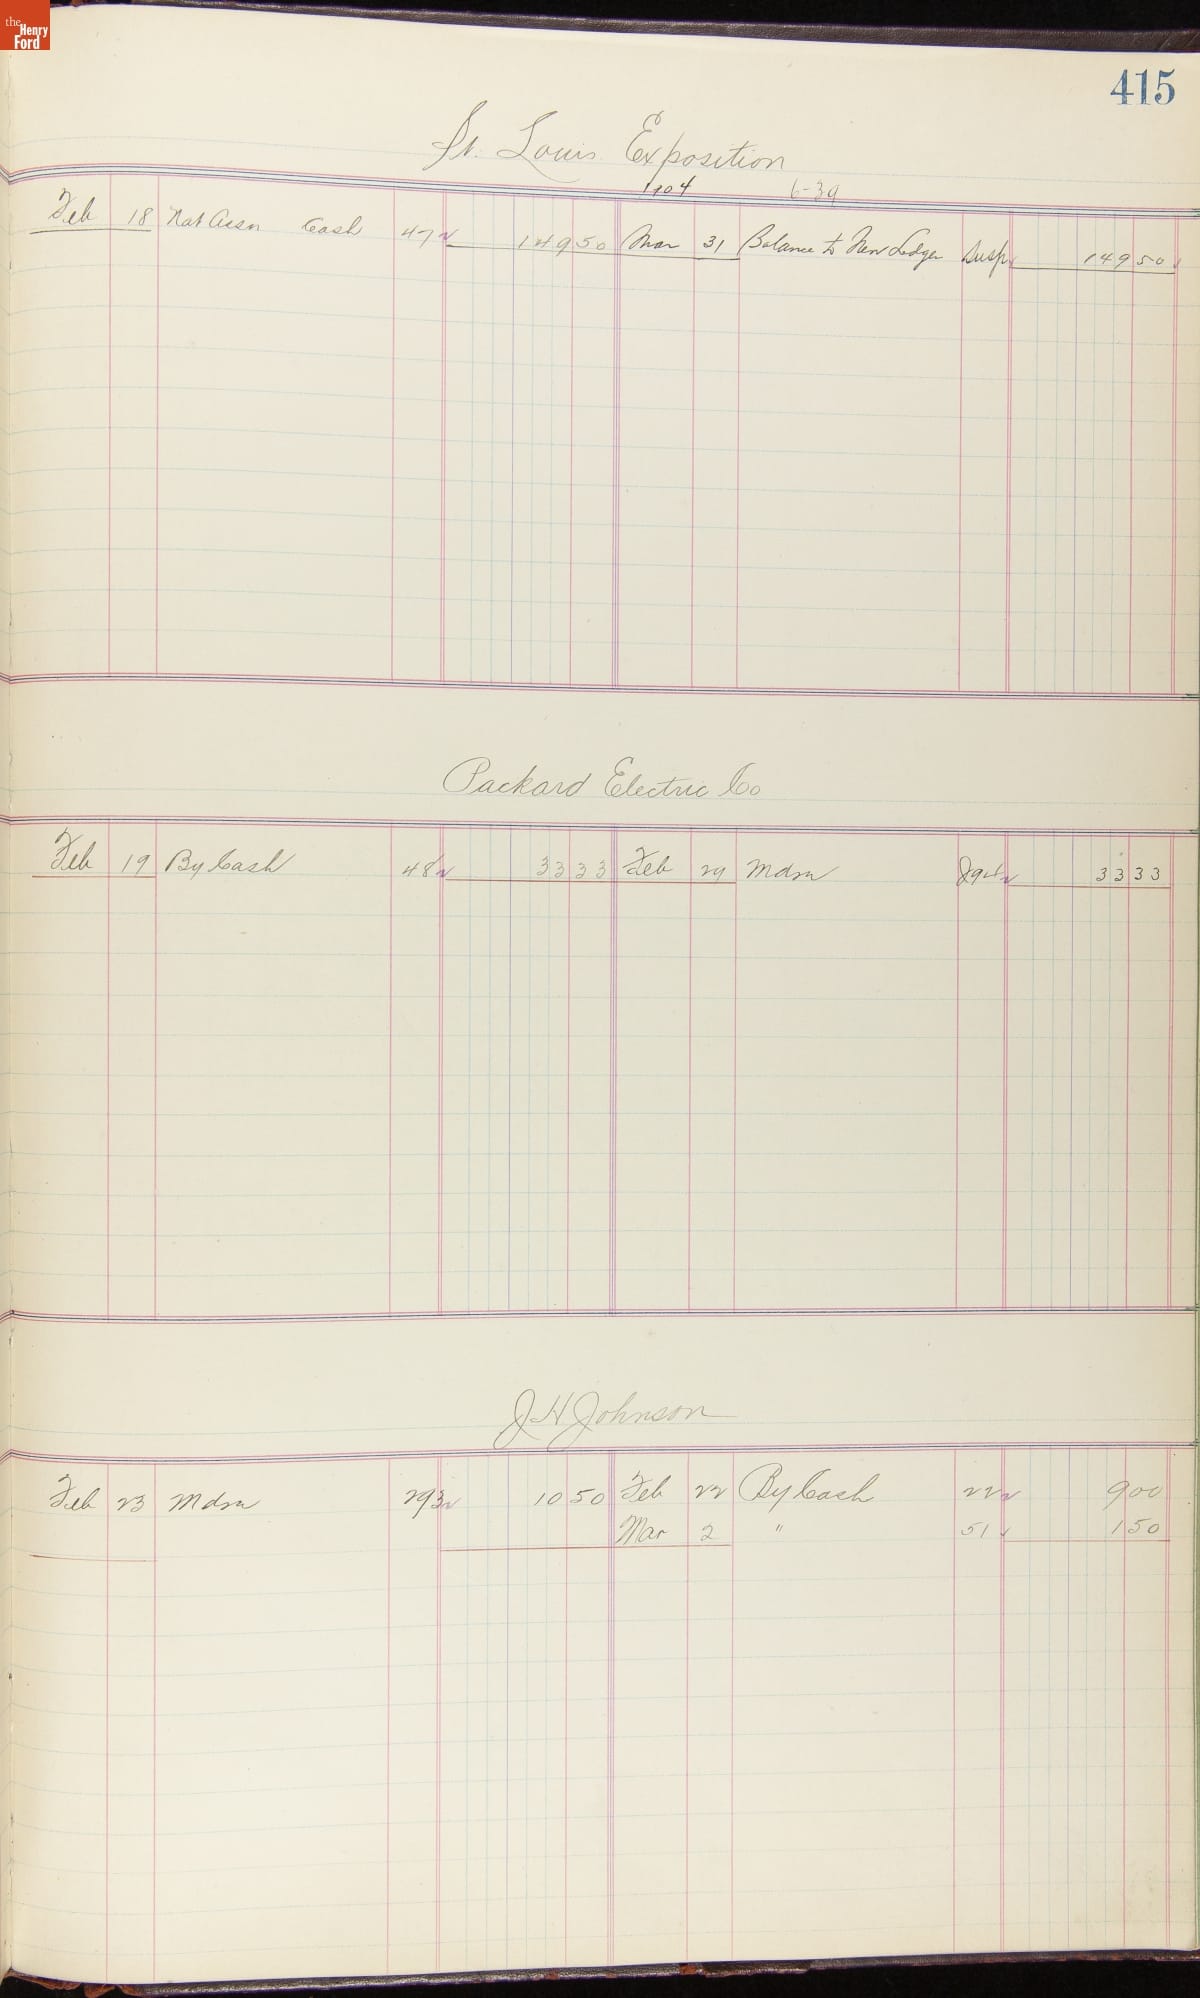 the Henry Ford
415
St. Louis Exposition
1904 6-39
Feb 18 Nat Assn Cash 47 149 50 Mar 31 Balance to New Ledger Susp 149 50
Packard Electric Co
Feb 19 By Cash 48 33 33 Feb 29 Mdse 33 33
J H Johnson
Feb 23 Mdse 293 10 50 Feb 22 By Cash 22 9 00
Mar 2 " 51 1 50